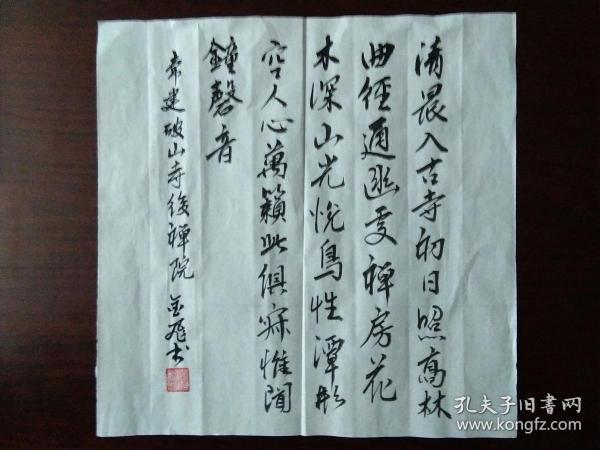 清晨入古寺初日照高林
曲徑通幽處禪房花
木深山光悅鳥性潭影
空人心萬籟此俱寂惟聞
鐘磬音
常建破山寺後禪院 书
孔夫子旧书网
www.kongfz.com